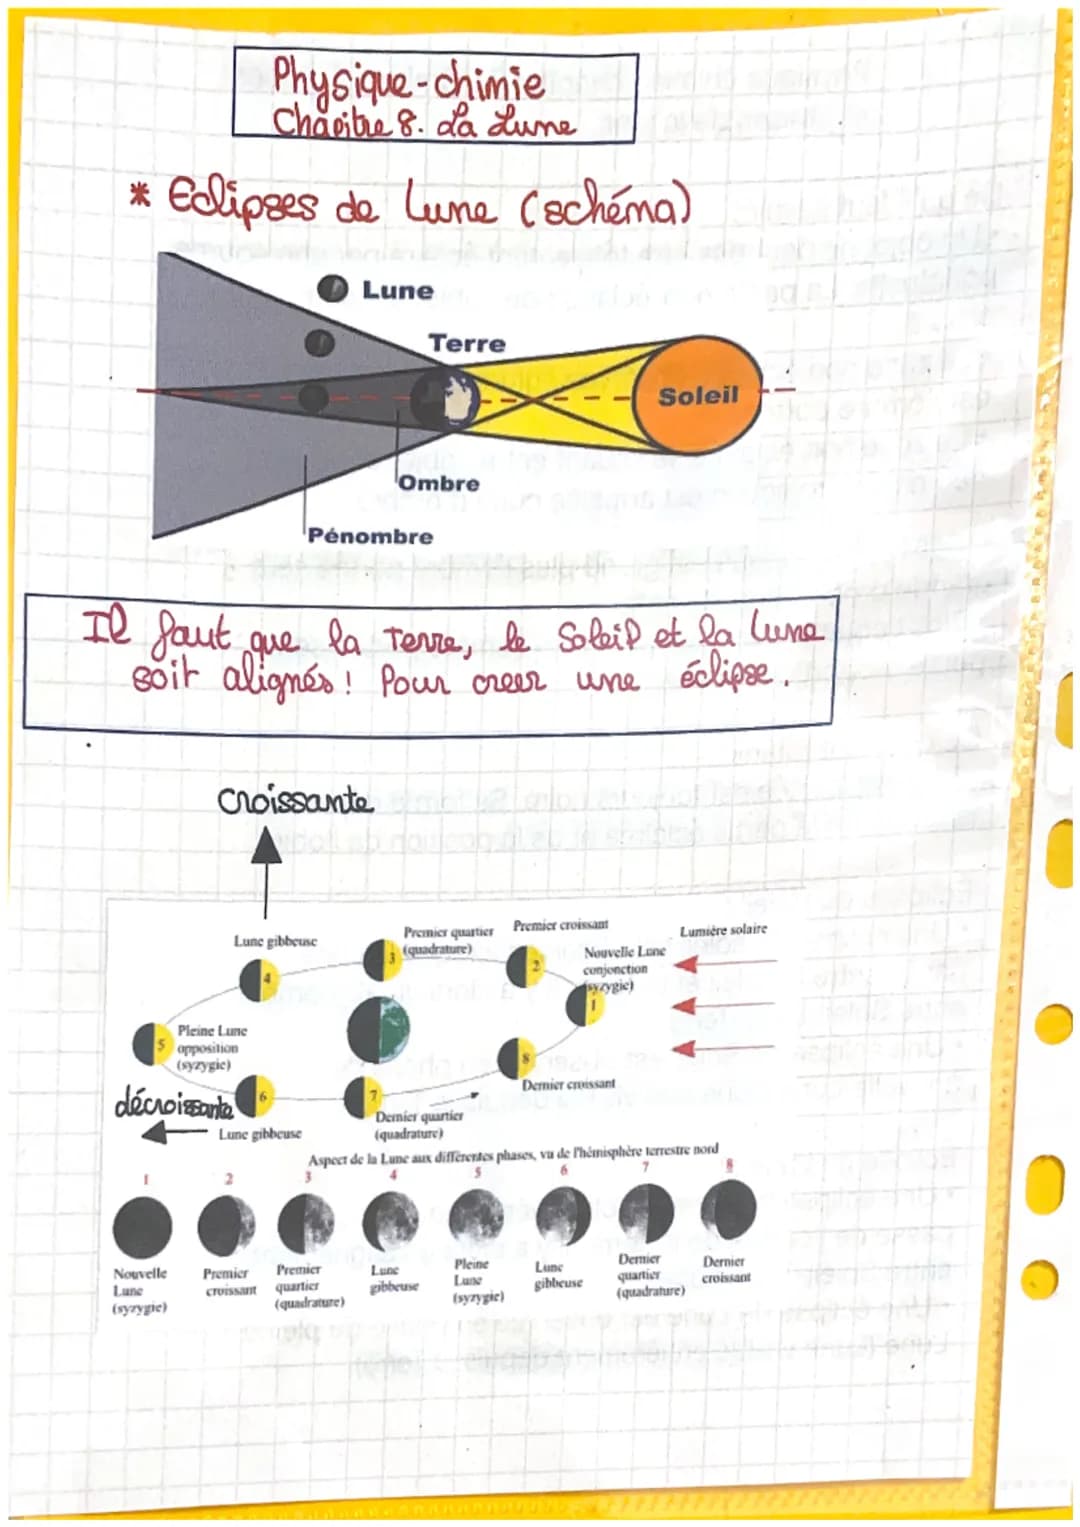 Physique-chimie
Chapitre 8. La Lune
* Eclipses de Lune (schéma)
Lune
Terre
Soleil
Ombre
Pénombre
Il faut que la Terre, le Soleil et la Lune
soit alignés! Pour creer une éclipse.
croissante
Lune gibbeuse
Premier quartier
(quadrature)
Premier croissant
Lumière solaire
Nouvelle Lune
conjonction
(syzygie)
4
3
2
1
Pleine Lune
opposition
(syzygie)
5
8
Dernier croissant
décroissante
6
7
Lune gibbeuse
Dernier quartier
(quadrature)
Aspect de la Lune aux différentes phases, vu de l'hémisphère terrestre nord
1 2 3 4 5 6 7 8
Nouvelle
Lune
(syzygie)
Premier
croissant
Premier
quartier
(quadrature)
Lune
gibbeuse
Pleine
Lune
(syzygie)
Lune
gibbeuse
Dernier
quartier
(quadrature)
Dernier
croissant